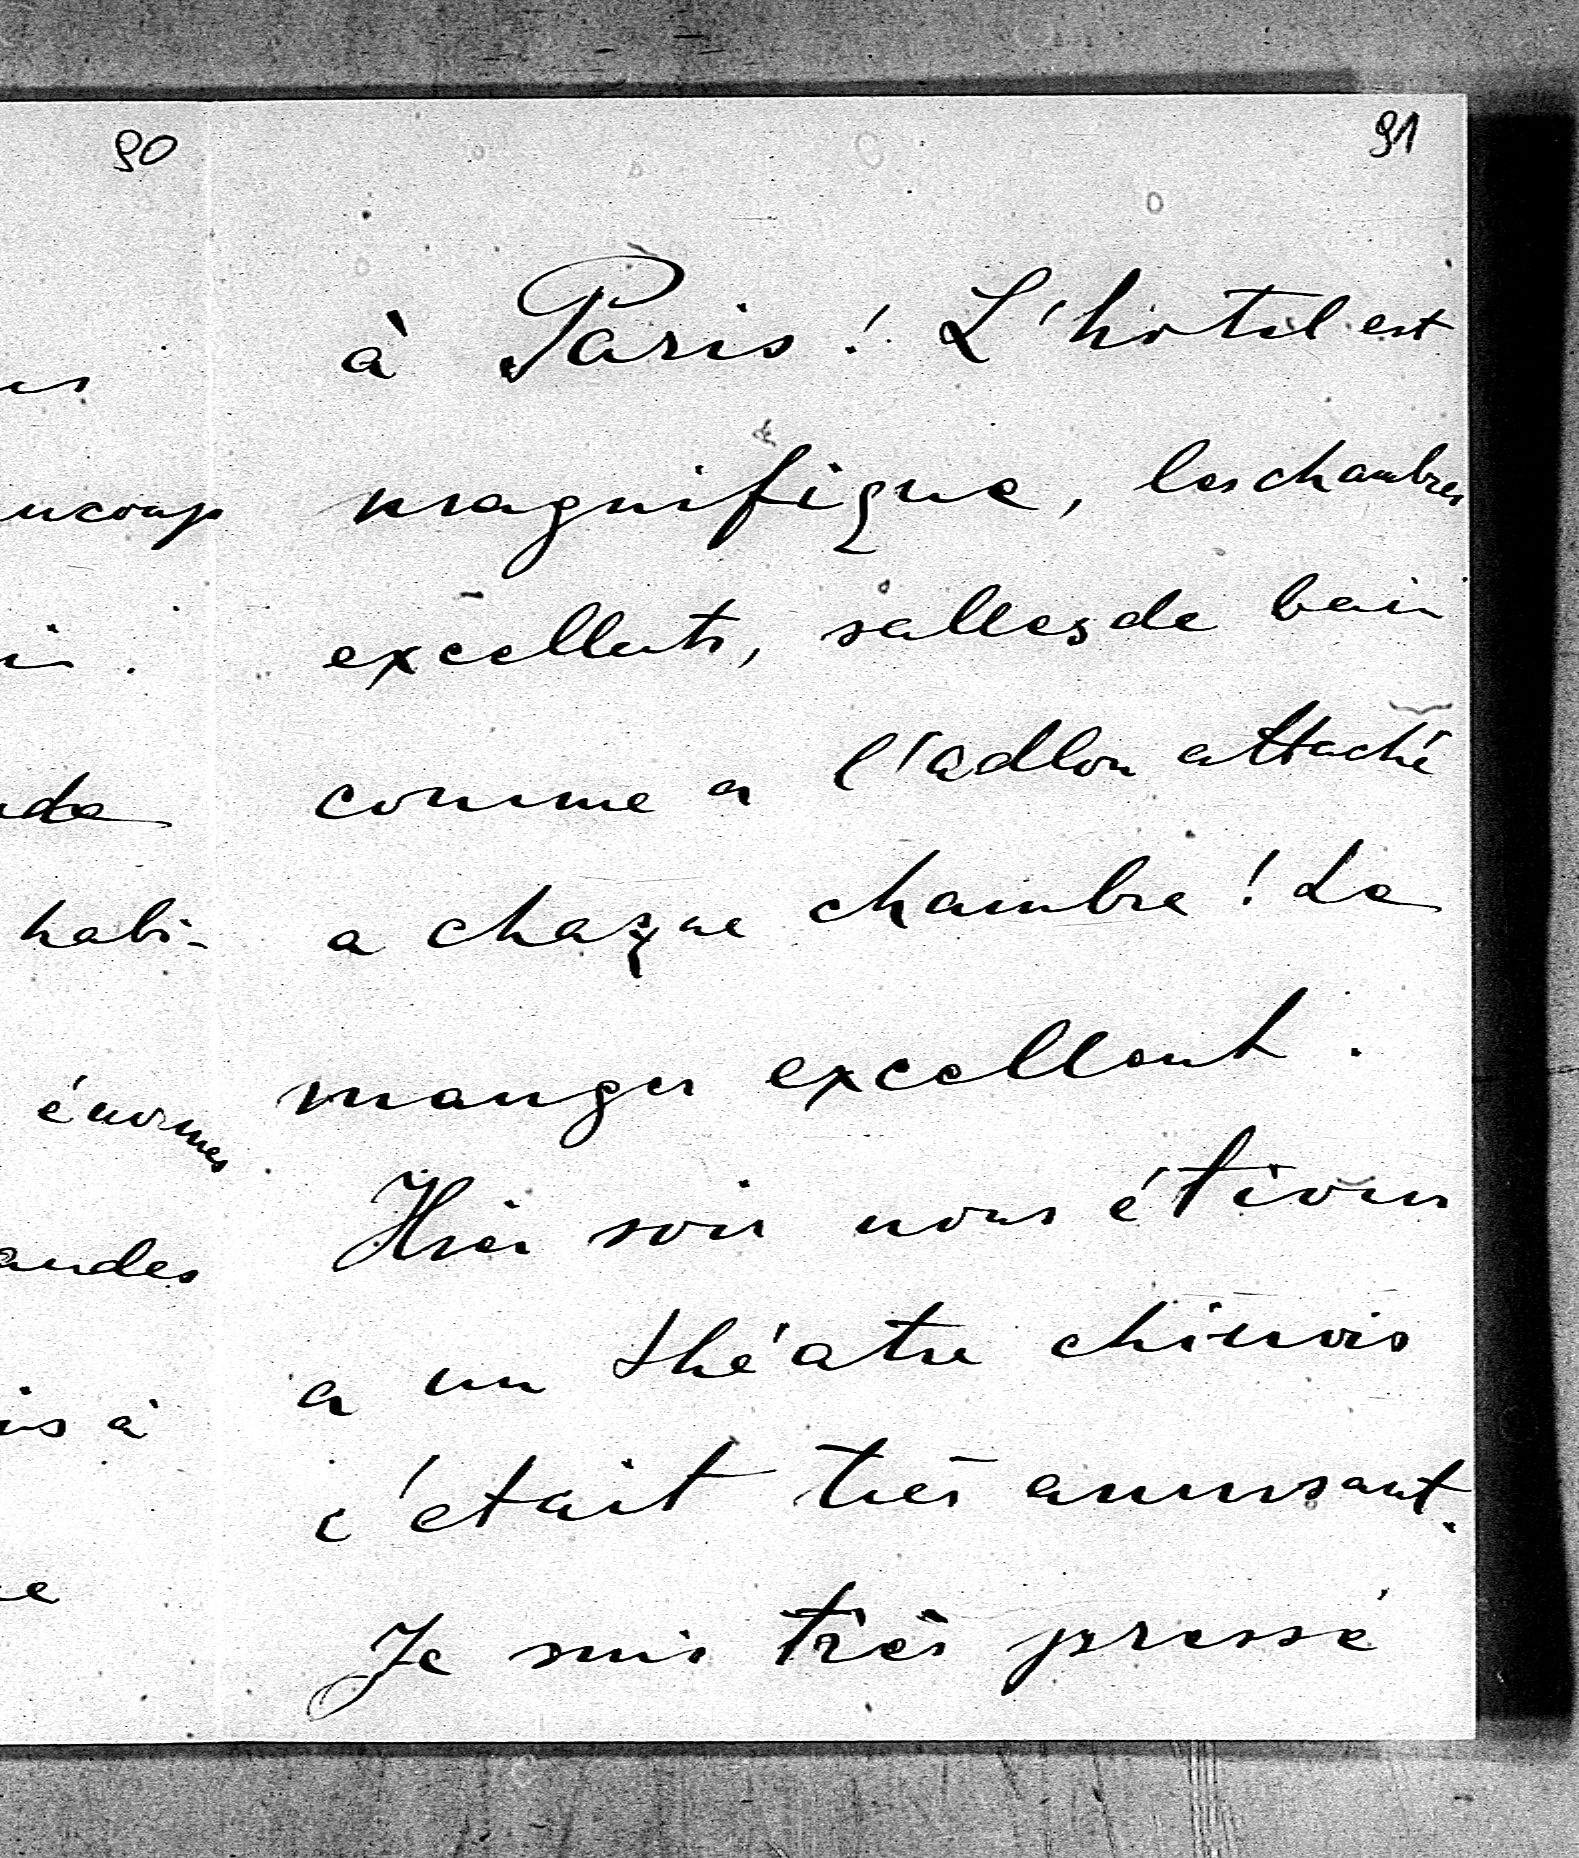 90
ucoup
habi-
énormes
à
91
à Paris! L'hotel est
magnifique, les chambres
excellents, salles de bain
comme a l'adlon attaché
a chaque chambre! Le
manger excellent.
Hier soir nous étions
a un théatre chinois
c'etait très amusant.
Je suis très pressé